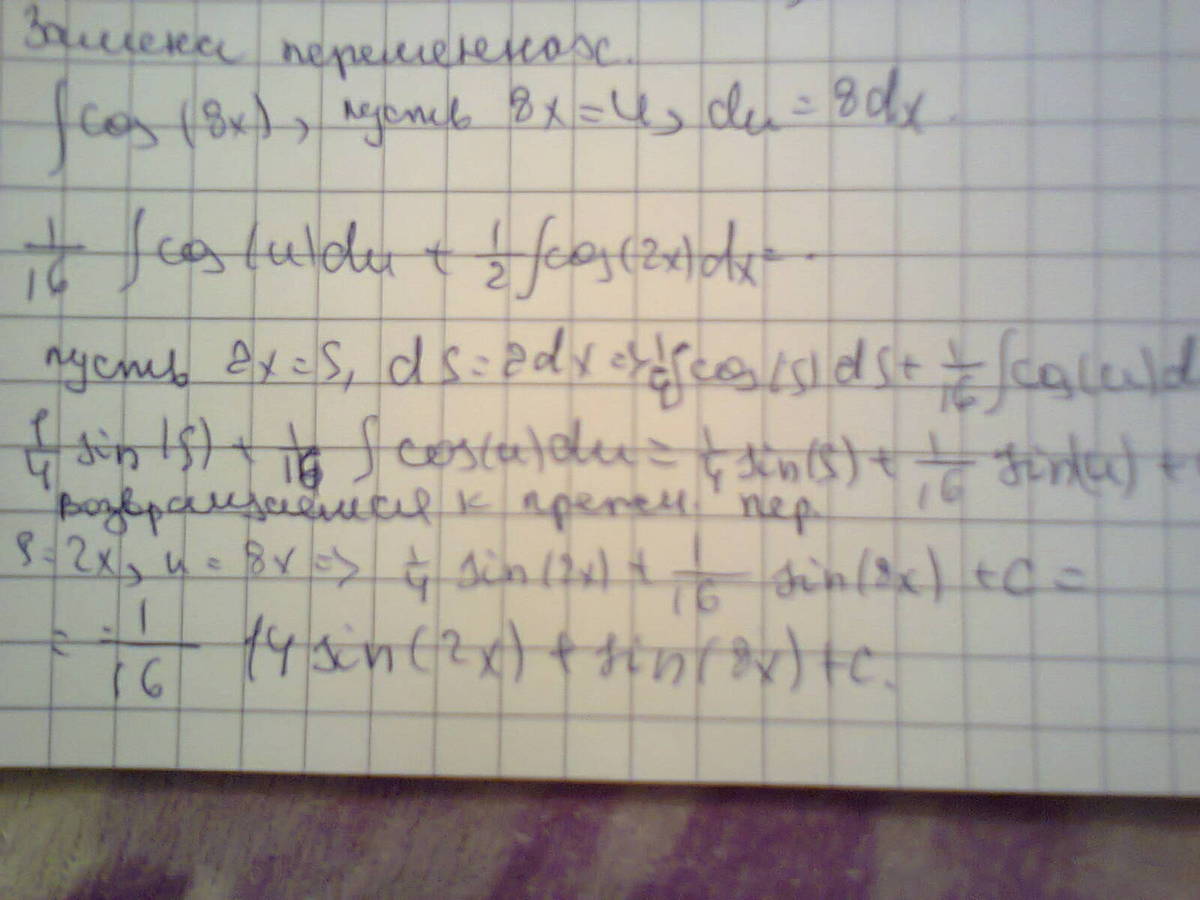 Замена переменных.
∫cos(8x), пусть 8x=u, du=8dx.
1/16 ∫cos(u)du + 1/2 ∫cos(2x)dx=
пусть 2x=s, ds=2dx => 1/4 ∫cos(s)ds + 1/16 ∫cos(u)d
1/4 sin(s) + 1/16 ∫cos(u)du = 1/4 sin(s) + 1/16 sin(u) +
возвращаемся к пер.
s=2x, u=8x => 1/4 sin(2x) + 1/16 sin(8x) +c =
= 1/16 (4sin(2x) + sin(8x)+c.